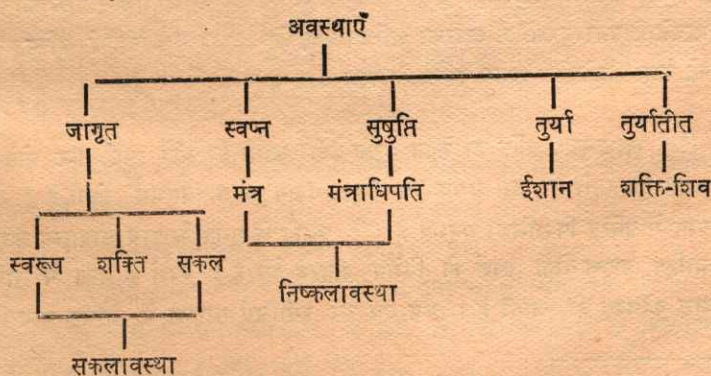 अवस्थाएँ
जागृत स्वप्न सुषुप्ति तुर्या तुर्यातीत
मंत्र मंत्राधिपति ईशान शक्ति-शिव
स्वरूप शक्ति सकल
निष्कलावस्था
सकलावस्था